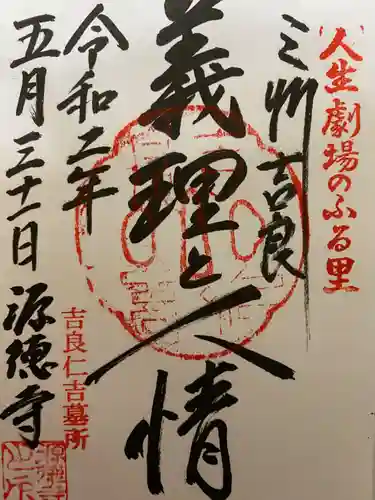 人生劇場のふる里
三州吉良
義理と人情
令和二年
五月三十一日
源徳寺
吉良仁吉墓所